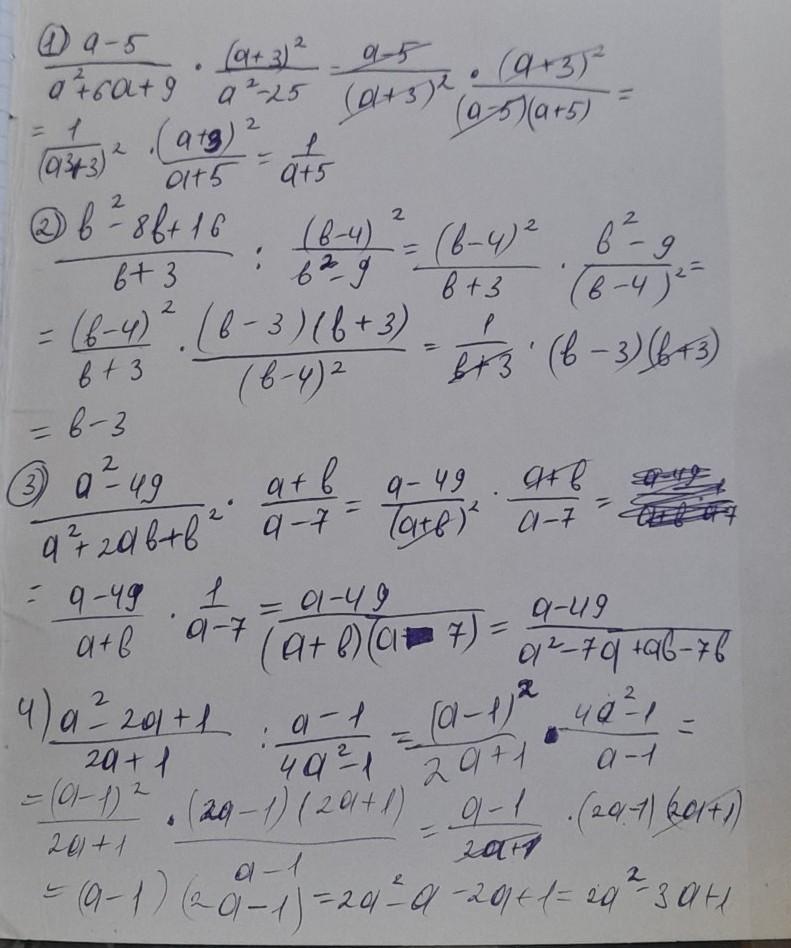 ① (a-5)/(a²+6a+9) · (a+3)²/(a²-25) = (a-5)/(a+3)² · (a+3)²/((a-5)(a+5)) =
= 1/(a+3)² · (a+3)²/(a+5) = 1/(a+5)
② (в²-8в+16)/(в+3) : (в-4)²/(в²-9) = (в-4)²/(в+3) · (в²-9)/(в-4)² =
= (в-4)²/(в+3) · ((в-3)(в+3))/(в-4)² = 1/(в+3) · (в-3)(в+3)
= в-3
③ (a²-49)/(a²+2aв+в²) · (a+в)/(a-7) = (a-49)/(a+в)² · (a+в)/(a-7) =
= (a-49)/(a+в) · 1/(a-7) = (a-49)/((a+в)(a-7)) = (a-49)/(a²-7a+aв-7в)
4) (a²-2a+1)/(2a+1) : (a-1)/(4a²-1) = (a-1)²/(2a+1) · (4a²-1)/(a-1) =
= (a-1)²/(2a+1) · ((2a-1)(2a+1))/(a-1) = (a-1)/(2a+1) · (2a-1)(2a+1)
= (a-1)(2a-1) = 2a²-a-2a+1 = 2a²-3a+1